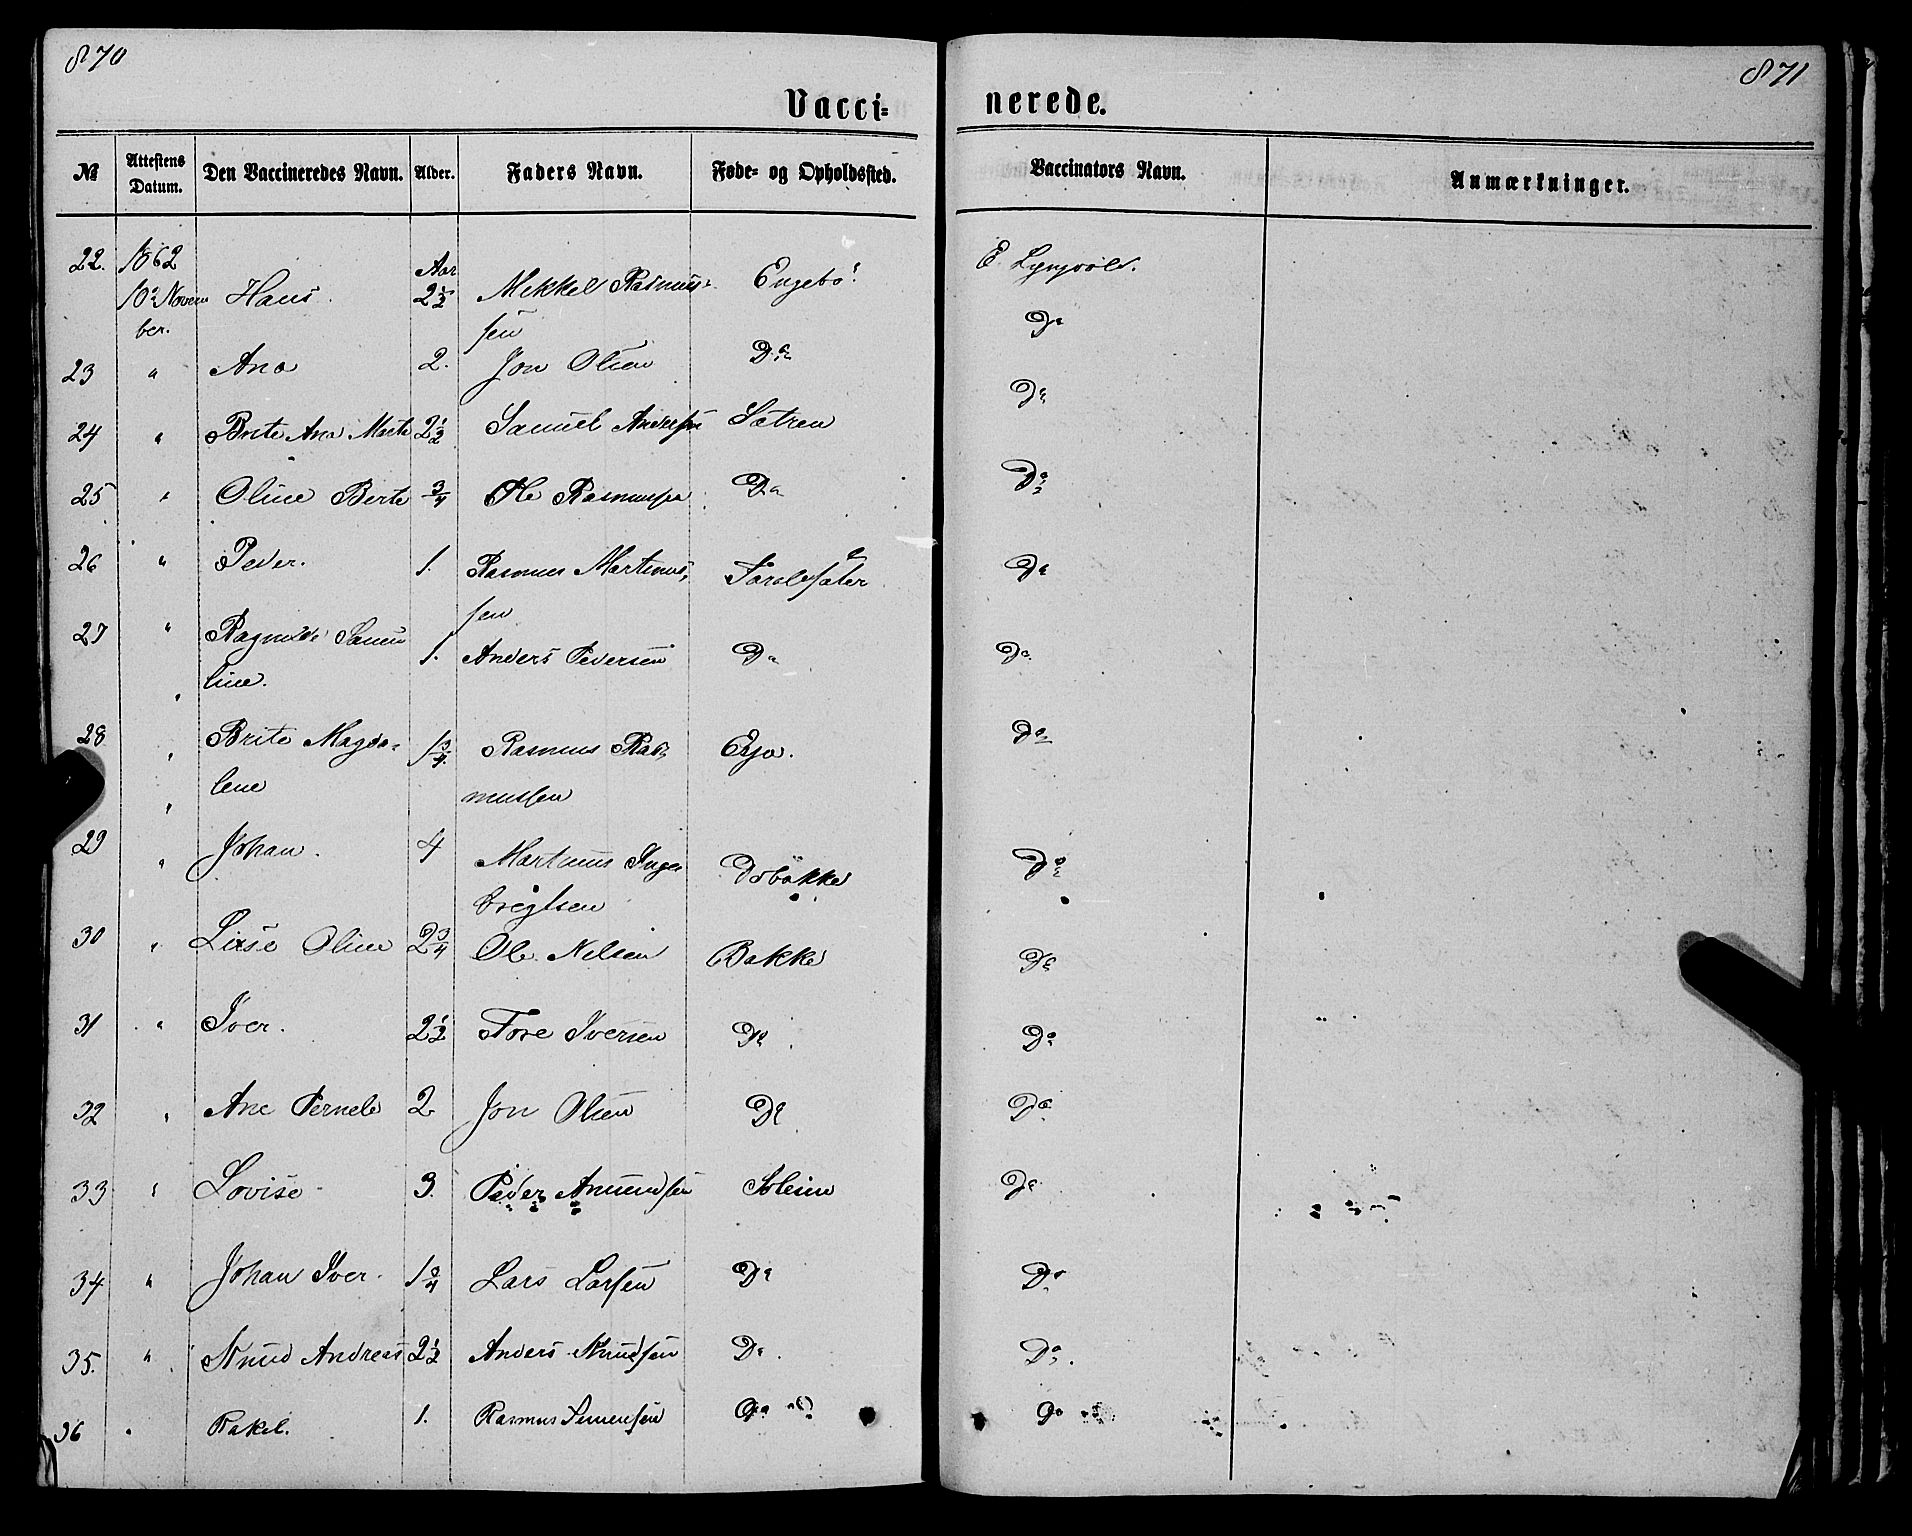 870
871
Vacci-
nerede.
№ Attestens Datum. Den Vaccineredes Navn. Alder. Faders Navn. Føde- og Opholdssted. Vaccinators Navn. Anmærkninger.
22. 1862 Aar
10de Novem Hans. 2½ Mekkel Rasmus- Engebø E. Lyngvold.
ber. sen Do
23 " Ana 2. Jon Olsen Do Do
24 " Brite Ana Marte 2½ Samuel Andersen Sætren Do
25 " Oline Berte ¾ Ole Rasmussen Do Do
26 " Peder. 1. Rasmus Martinus, Do
sen
27 " Ragnilde Samu 1. Anders Pedersen Do Do
line.
28 " Brite Magda- 1¾ Rasmus Ras, Do
lene mussen
29 " Johan. 4 Martinus Inge Do
brigtsen
30 " Lisse Oline 2¾ Ole Nelsen Bakke Do
31 " Iver. 2½ Tore Iversen Do Do
32 " Ane Pernele 2 Jon Olsen Do Do
33 " Lovise 3. Peder Amundsen Soleim Do
34 " Johan Iver. 1¾ Lars Larsen Do Do
35. " Knud Andreas 2½ Anders Knudsen Do Do
36 " Rakel. 1. Rasmus Simensen Do Do